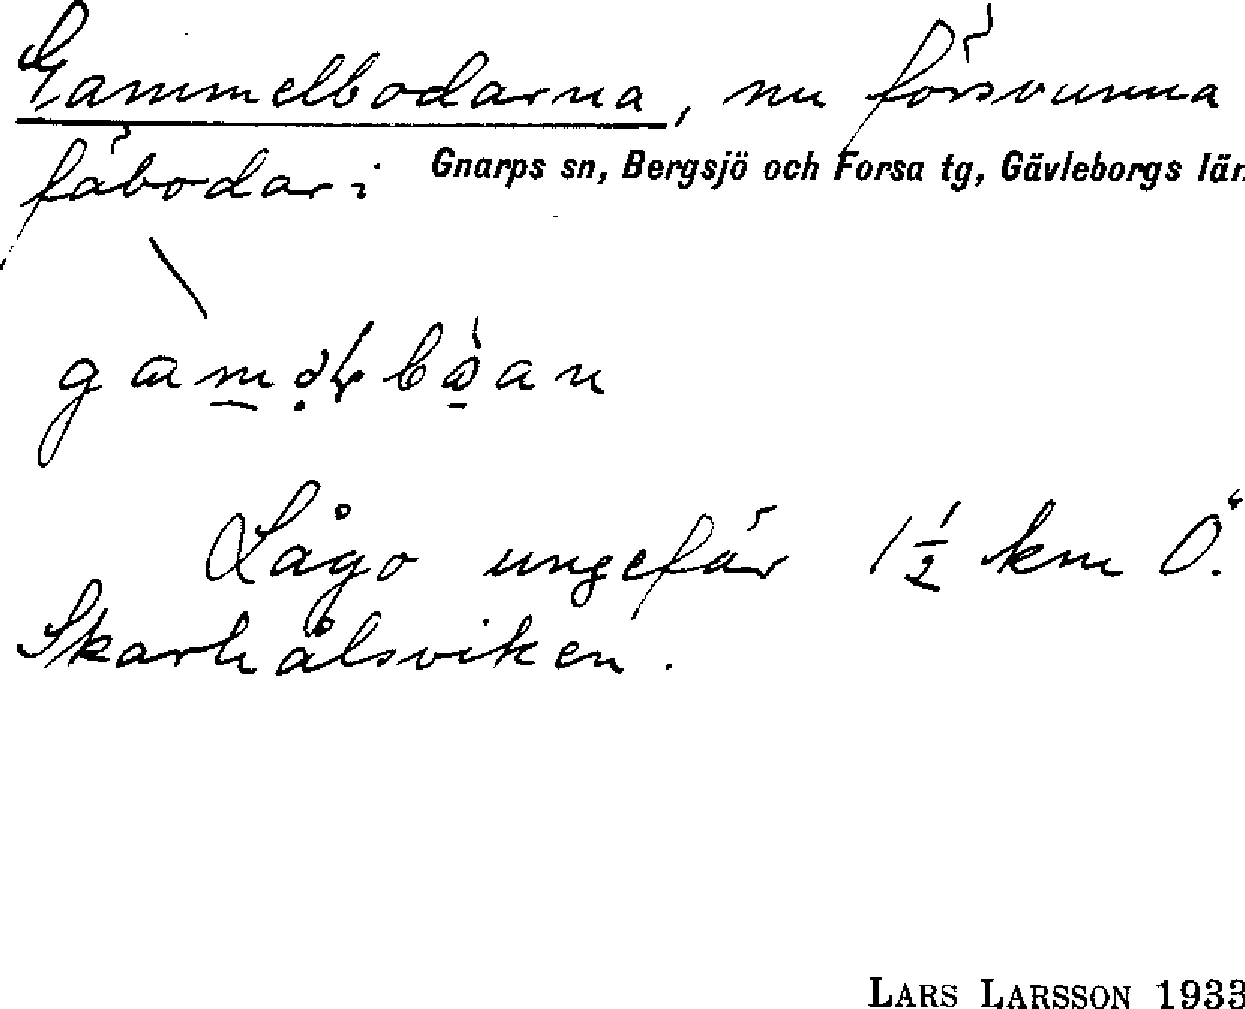 Gammelbodarna, nu försvunna
fäbodar i Gnarps sn, Bergsjö och Forsa tg, Gävleborgs län
Lågo ungefär 1½ km Ö.
Skarhålsviken.
LARS LARSSON 1933